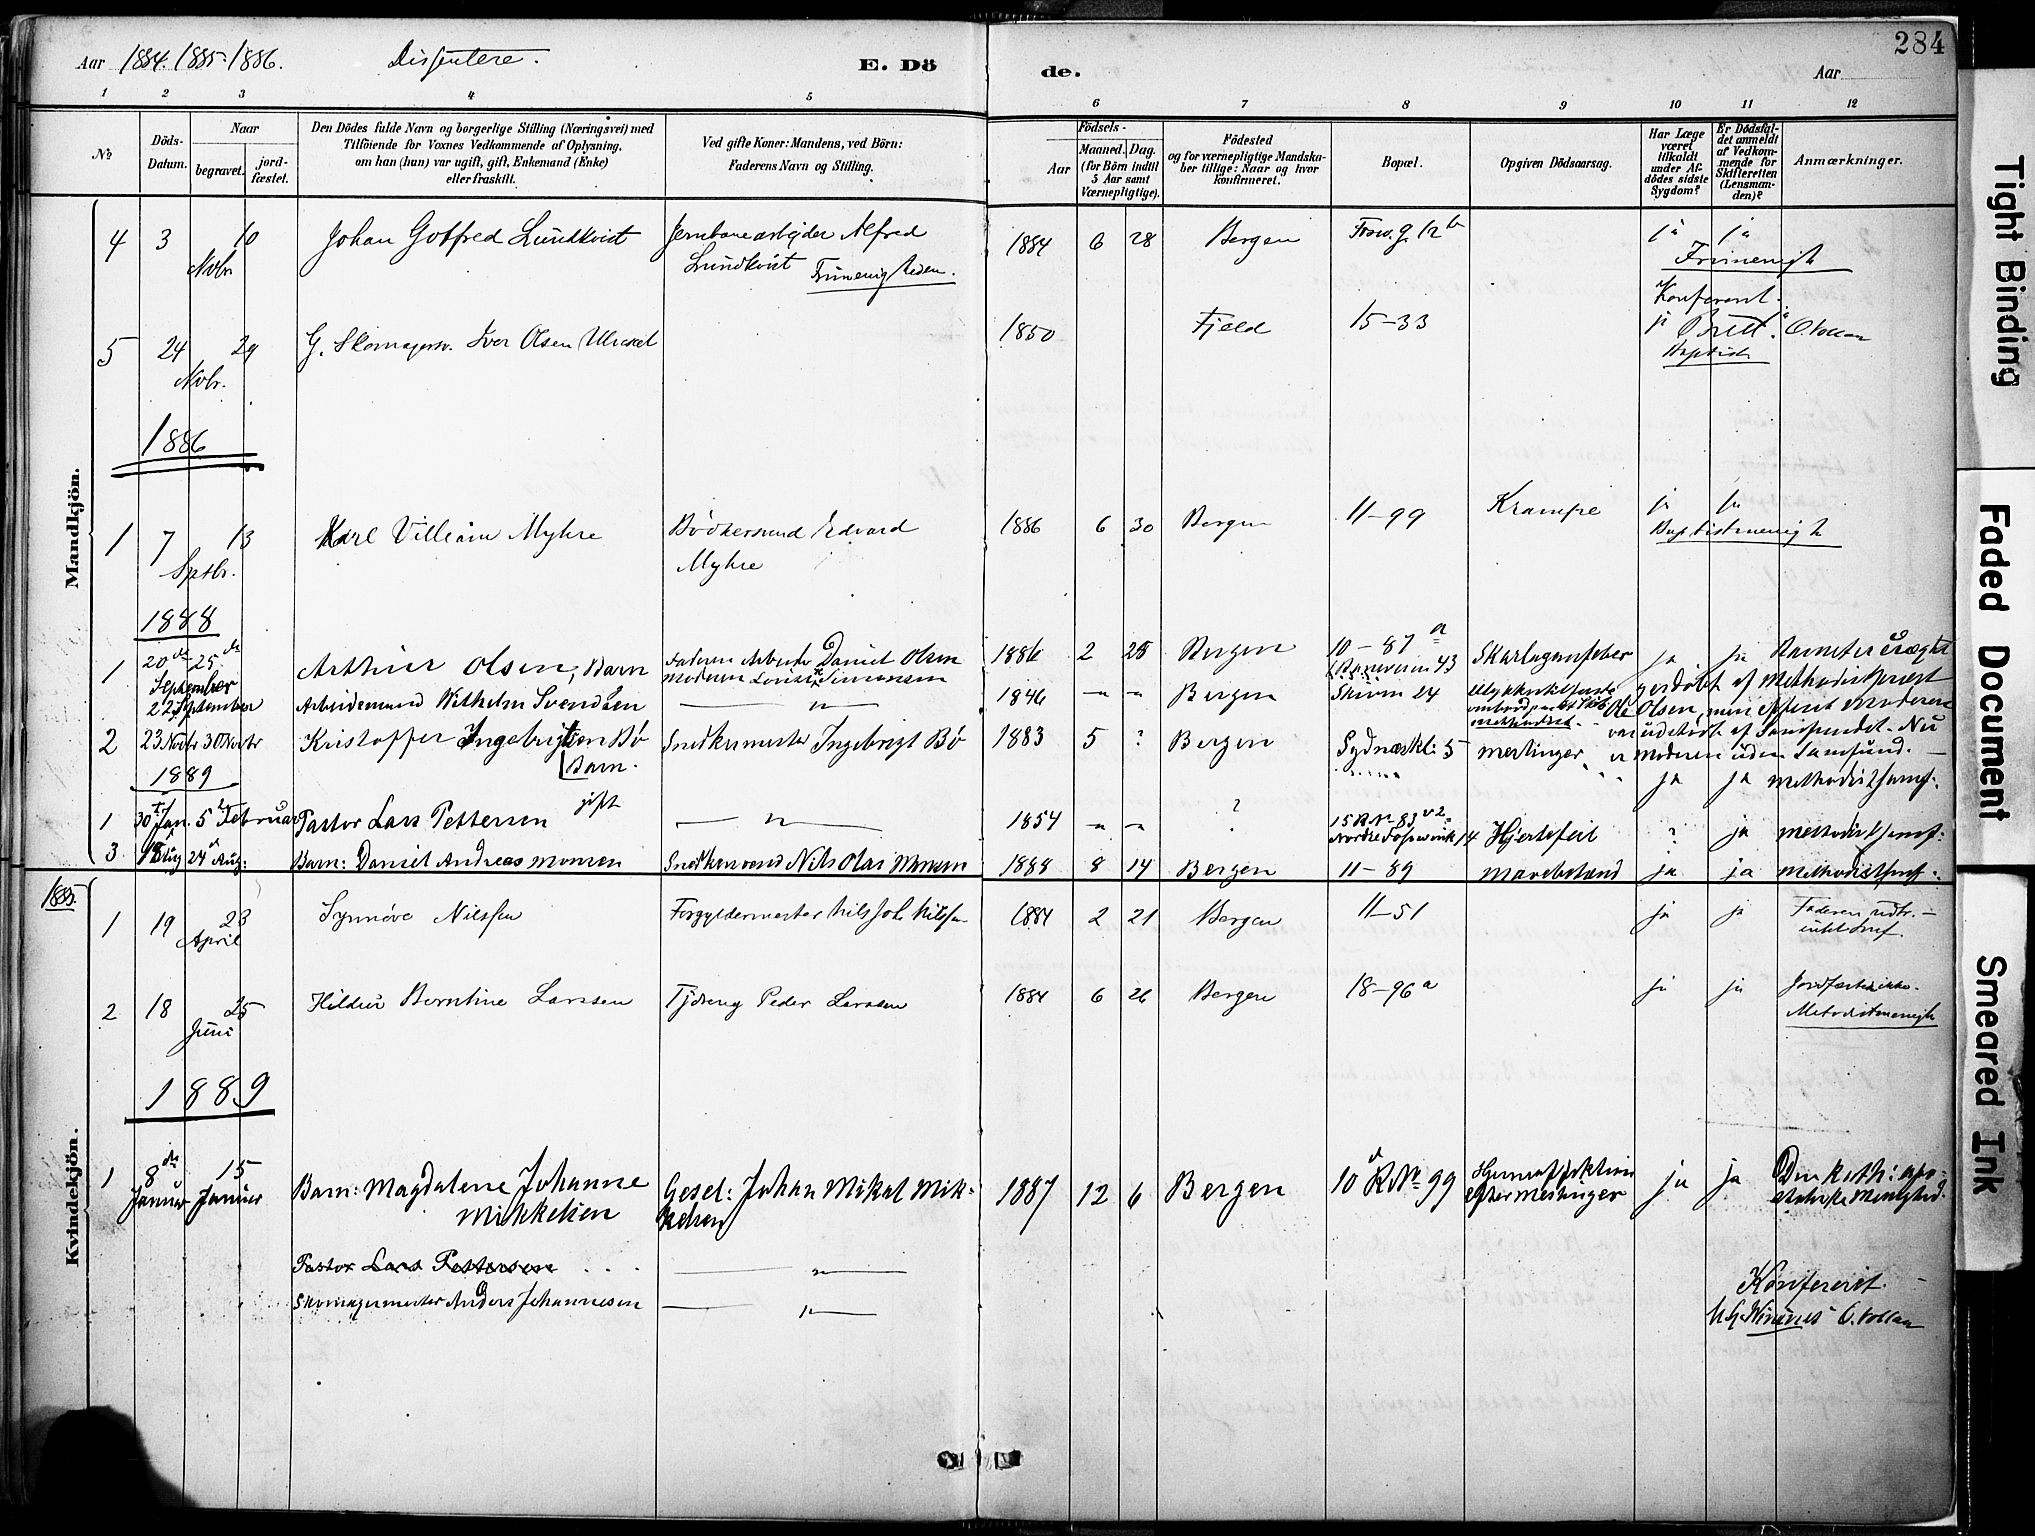 Aar 1884. 1885. 1886. Dissentere. E. Dö
de. Aar
284
1 2 3 4 5
6 7 8 9 10 11 12
№ Döds-Datum. Naar begravet. jordfæstet.
Den Dödes fulde Navn og borgerlige Stilling (Næringsvei) med
Tilföiende for Voxnes Vedkommende af Oplysning.
om han (hun) var ugift, gift, Enkemand (Enke)
eller fraskilt.
Ved gifte Koner: Mandens, ved Börn:
Faderens Navn og Stilling.
Födsels-
Aar Maaned. Dag.
(for Börn indtil
5 Aar samt
Værnepligtige).
Födested
og for værnepligtige Mandska-
ber tillige: Naar og hvor
konfirmeret.
Bopæl.
Opgiven Dödsaarsag.
Har Læge
været
tilkaldt
under Af-
dödes sidste
Sygdom?
Er Dödsfal-
det anmeldt
af Vedkom-
mende for
Skifteretten
(Lensman-
den)?
Anmærkninger.
Mandkjön.
4 3 10 Johan Gotfred Lundkvist Jernbanearbejder Alfred 1884 6 28 Bergen ja ja
Nvbr. Lundkvist Frimenigheden. Frimenigh
Konferent.
5 24 29 G. Skomagersv. Iver Olsen 1850 Fjeld 15-33 ja Britt. O. Vollan
Nvbr. Baptist
1886
1 7 13 Karl Villiam Myhre Bödkersvend Edvard 1886 6 30 Bergen 11-99 Krampe ja ja
Sptbr. Myhre Baptistmenigh
1888
1 20de 25de Arthur Olsen, Barn Faderen Arbeider Daniel Olsen 1886 2 25 Bergen 10-87a Skarlagensfeber ja ja Barnet er
September Moderen Lovise Simonsen 43 gerdöbt af Methodistpræst
22 September Arbeidsmand Wilhelm Svendsen — " — 1846 " " Bergen Skiven 24 Ole Olsen, men Moderen
2 23 Novbr 30 Novbr Kristoffer Ingebrigtsen Bö Snedkermester Ingebrigt Bö 1883 5 ? Bergen Sydnæskl: 5 meslinger er Moderen uden Samfund.
Barn. ja ja methodistsamf.
1889
1 30 Jan. 5 Februar Pastor Lars Pettersen gift — " — 1854 " " ? 15 R № 83 Hjertefeil ? ja methodistsamf.
3 18 Aug 24 Aug: Barn: Daniel Andreas Monsen Snedkersvend Nils Olai Monsen 1888 8 14 Bergen 11-89 ja ja methodistsamf.
Kvindekjön.
1885
1 19 23 Synnöve Nilssen Forgyldermester Nils Joh. Nilsen 1884 2 21 Bergen 11-51 ja ja Faderen udtr. -
April
2 18 25 Hildur Berntine Larssen Peder Larssen 1884 6 26 Bergen 18-96a ja ja Jordfæstet ikke.
Juni Metodistmenigh
1889
1 8de 15 Barn: Magdalene Johanne Gesel: Johan Mikal Mik- 1887 12 6 Bergen 10d R № 99 ja ja Den kath: apo-
Januar Januar Mikkelsen kelsen efter Meslinger stoliske Menighed.
Pastor Lars Pettersen — " —
Skomagermester Anders Johannesen — " —
Konfererit
O. Vollan
Tight Binding
Faded Document
Smeared Ink